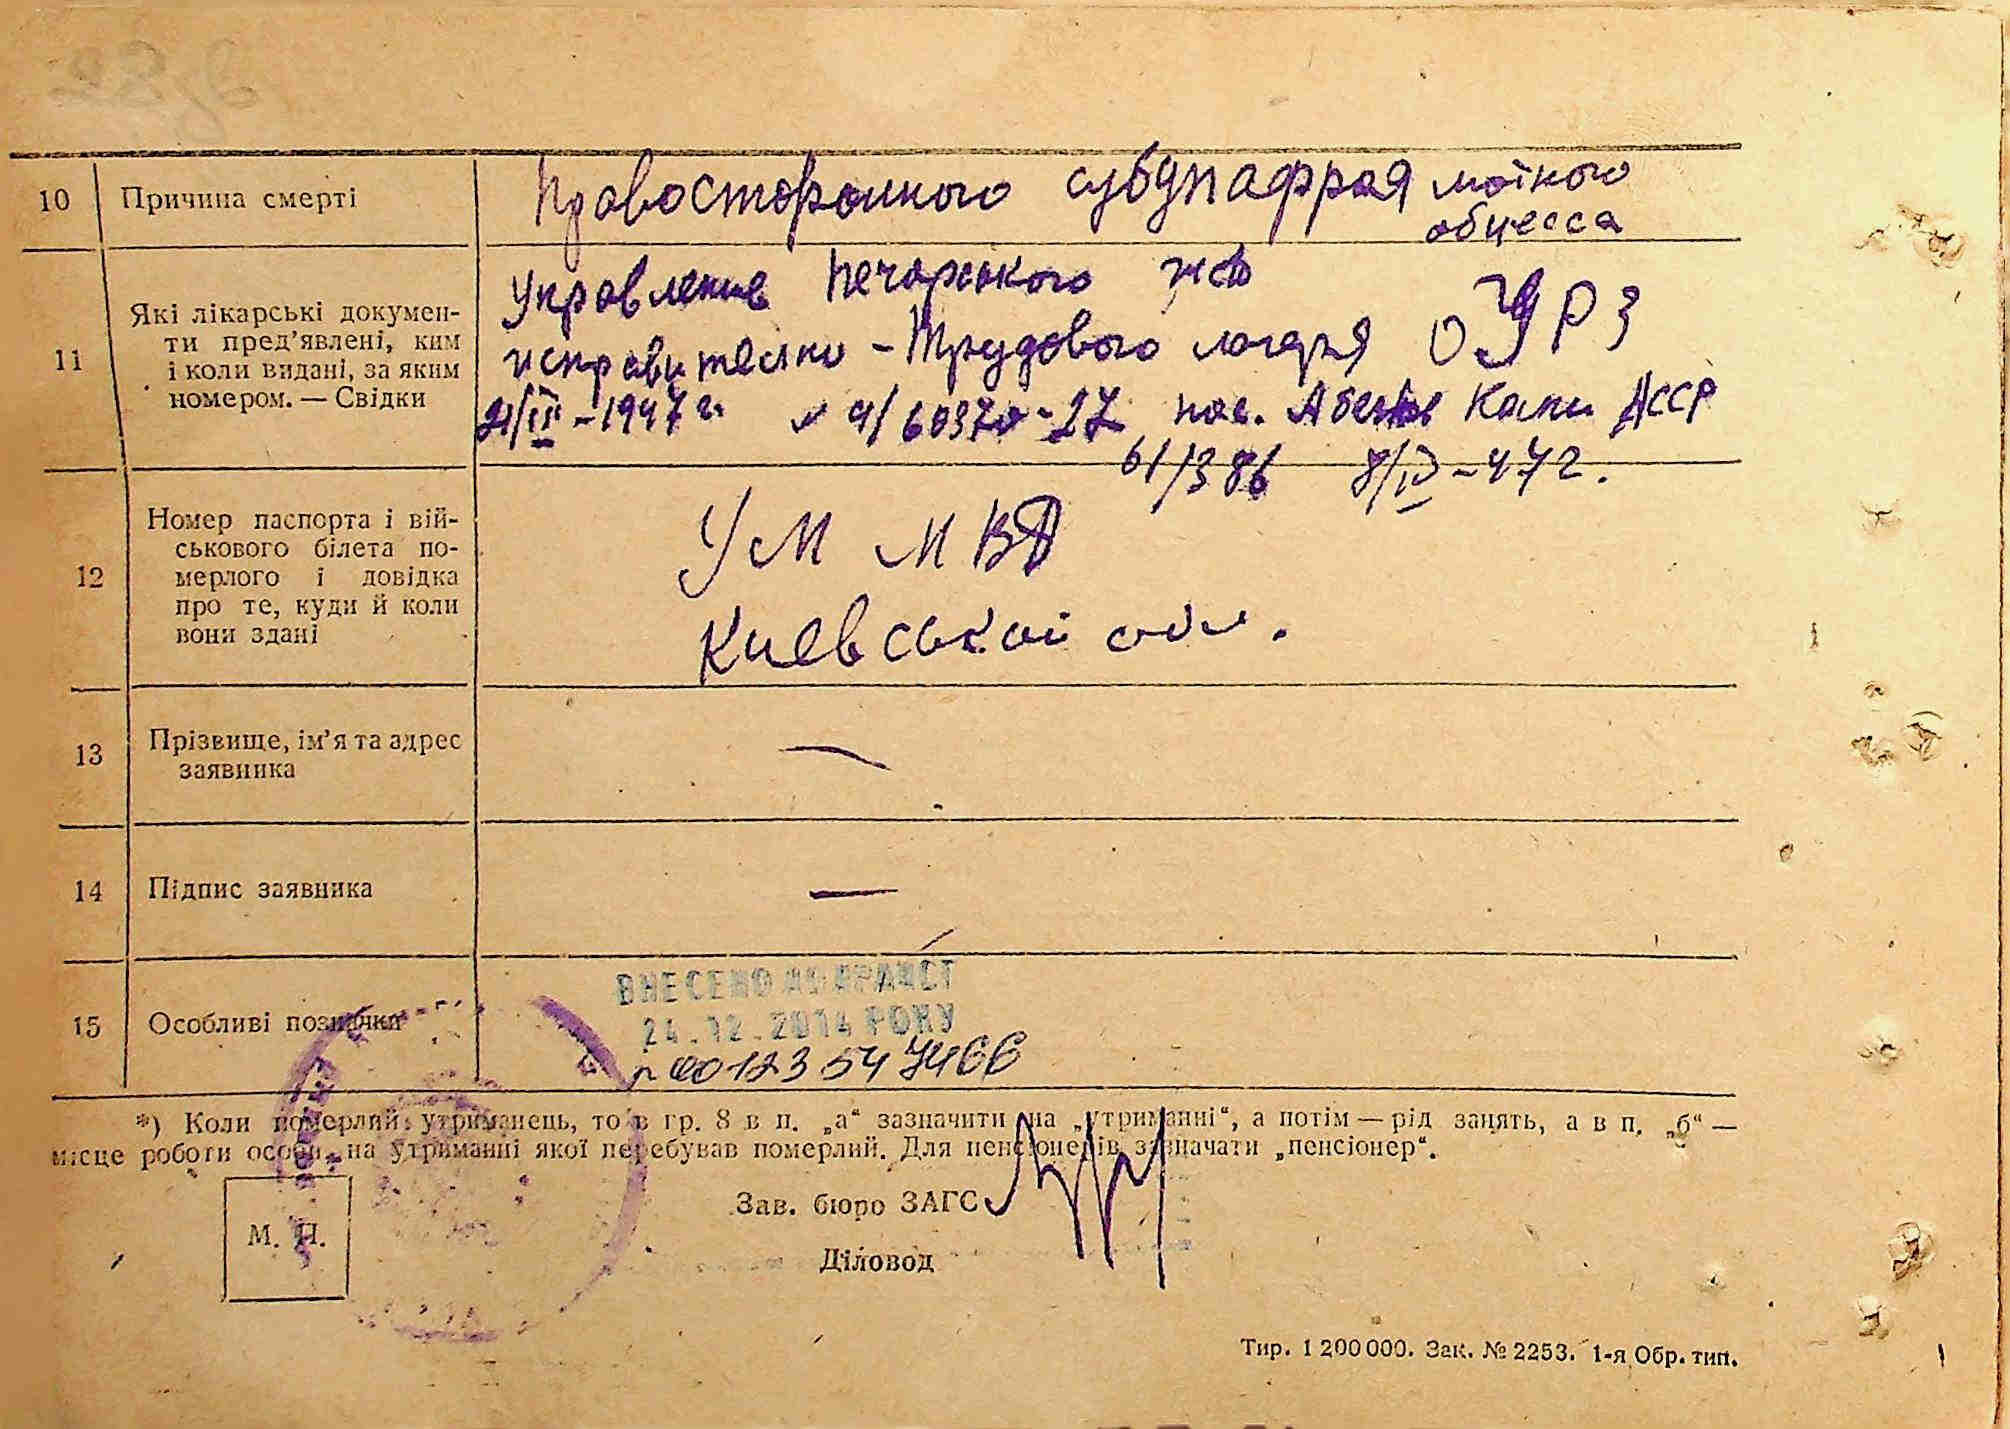 10 Причина смерті Правостороннего субдиафрагматического
абцесса
11 Які лікарські докумен-
ти пред’явлені, ким
і коли видані, за яким
номером. — Свідки
Управления Печорського ж/д
исправительно-Трудового лагеря ОУРЗ
21/III-1947 г. пос. Абезь Коми АССР
61/386 8/IV-47 г.
12 Номер паспорта і вій-
ськового білета по-
мерлого і довідка
про те, куди й коли
вони здані
УМ МВД
Киевськой обл.
13 Прізвище, ім’я та адрес
заявника —
14 Підпис заявника —
15 Особливі позначки
ВНЕСЕНО ДО ДРАЦСГ
24.12.2014 РОКУ
№00123547466
*) Коли померлий утриманець, то в гр. 8 в п. „а“ зазначити на „утриманні“, а потім — рід занять, а в п. „б“ —
місце роботи особи, на утриманні якої перебував померлий. Для пенсіонерів зазначати „пенсіонер“.
М. П.
Зав. бюро ЗАГС
Діловод
Тир. 1 200 000. Зак. № 2253. 1-я Обр. тип.